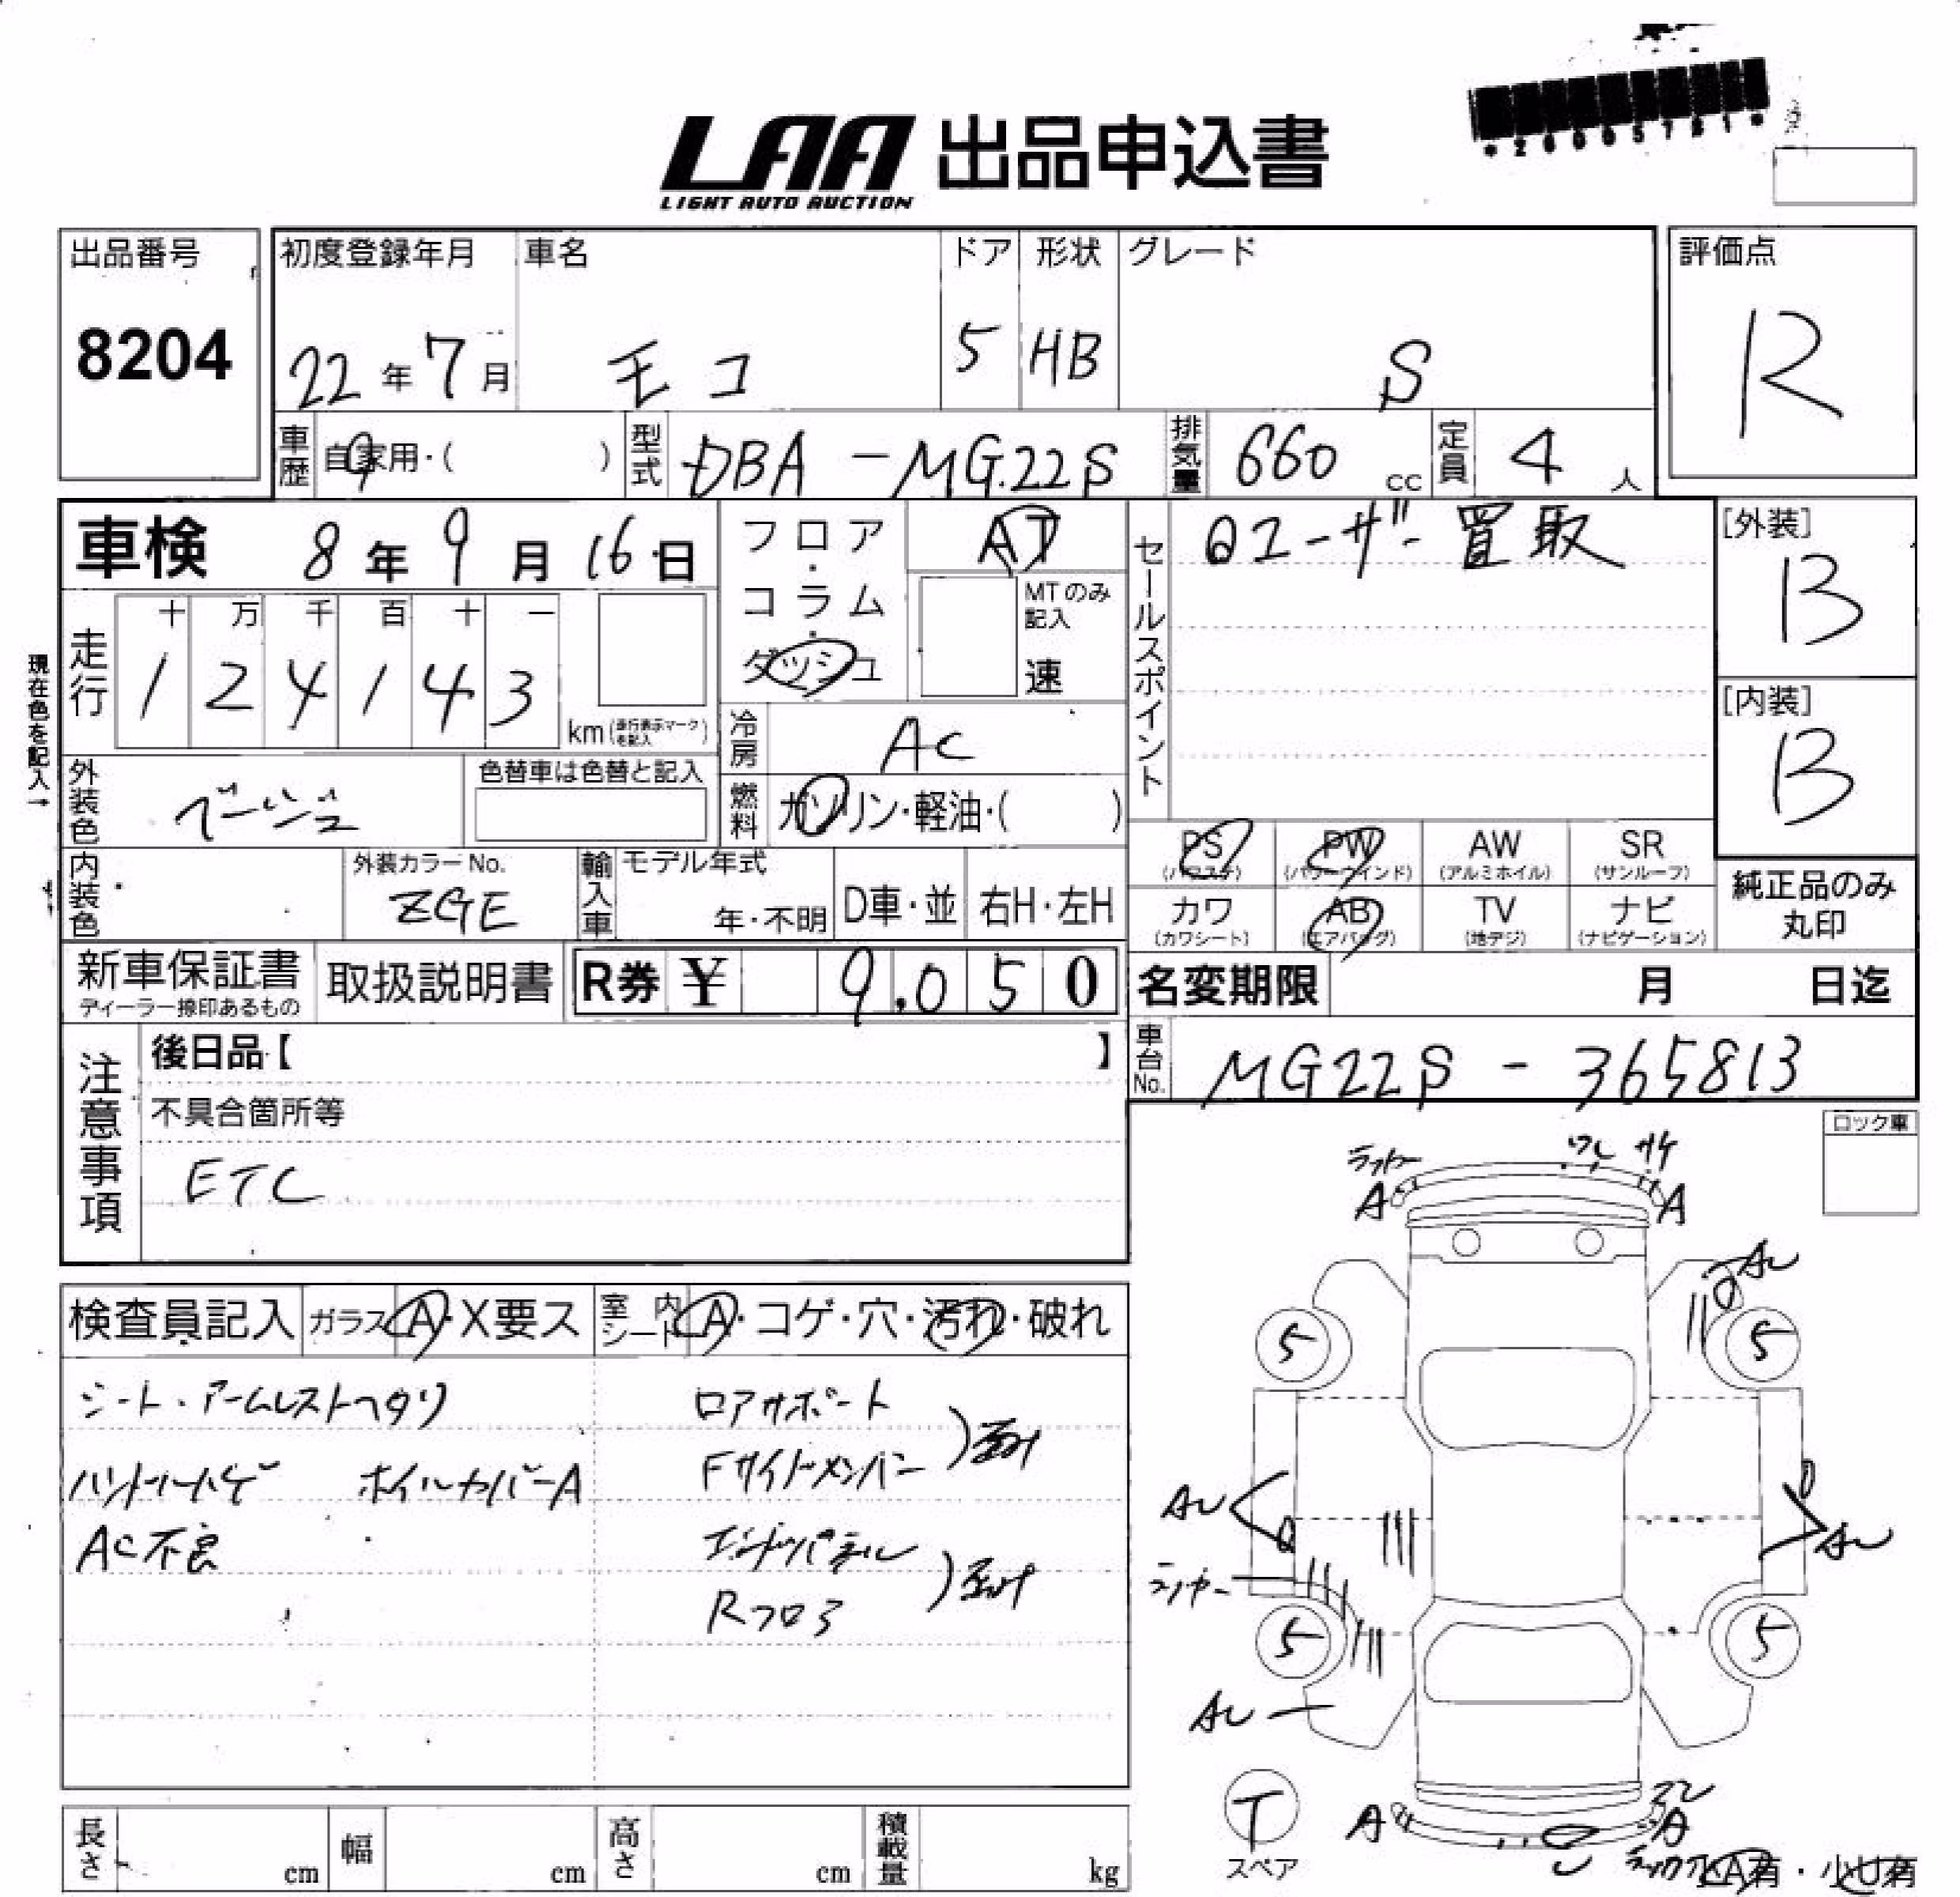 *26005781*
LAA 出品申込書
LIGHT AUTO AUCTION
出品番号
8204
初度登録年月
22年7月
車名
モコ
ドア
5
形状
HB
グレード
S
評価点
R
車歴
自家用・( )
型式
DBA-MG22S
排気量
660cc
定員
4人
車検 8年9月16日
フロア・コラム・ダッシュ
AT
MTのみ記入
速
セールスポイント
ユーザー買取
[外装]
B
[内装]
B
現在色を記入→
走行
十 万 千 百 十 一
1 2 4 1 4 3
km(走行表示マークを記入)
冷房
AC
燃料
ガソリン・軽油・( )
外装色
ベージュ
色替車は色替と記入
内装色
外装カラーNo.
ZGE
輸入車
モデル年式
年・不明
D車・並
右H・左H
PS
(パワステ)
PW
(パワーウインド)
AW
(アルミホイル)
SR
(サンルーフ)
カワ
(カワシート)
AB
(エアバッグ)
TV
(地デジ)
ナビ
(ナビゲーション)
純正品のみ
丸印
新車保証書
ディーラー捺印あるもの
取扱説明書
R券 ¥ 9,050
名変期限 月 日迄
車台No.
MG22S-365813
注意事項
後日品【 】
不具合箇所等
ETC
ロック車
検査員記入
ガラス A・X要ス
室内シート A・コゲ・穴・汚れ・破れ
シート・アームレストヘタリ
ハンドルハゲ ホイルカバーA
AC不良
ロアサポート
Fサイドメンバー
エンドパネル
Rフロア
ワレ
サケ
A
A
AU
5
5
AU
AU
5
5
AU
T
スペア
A
A
小A有・小U有
長さ cm
幅 cm
高さ cm
積載量 kg